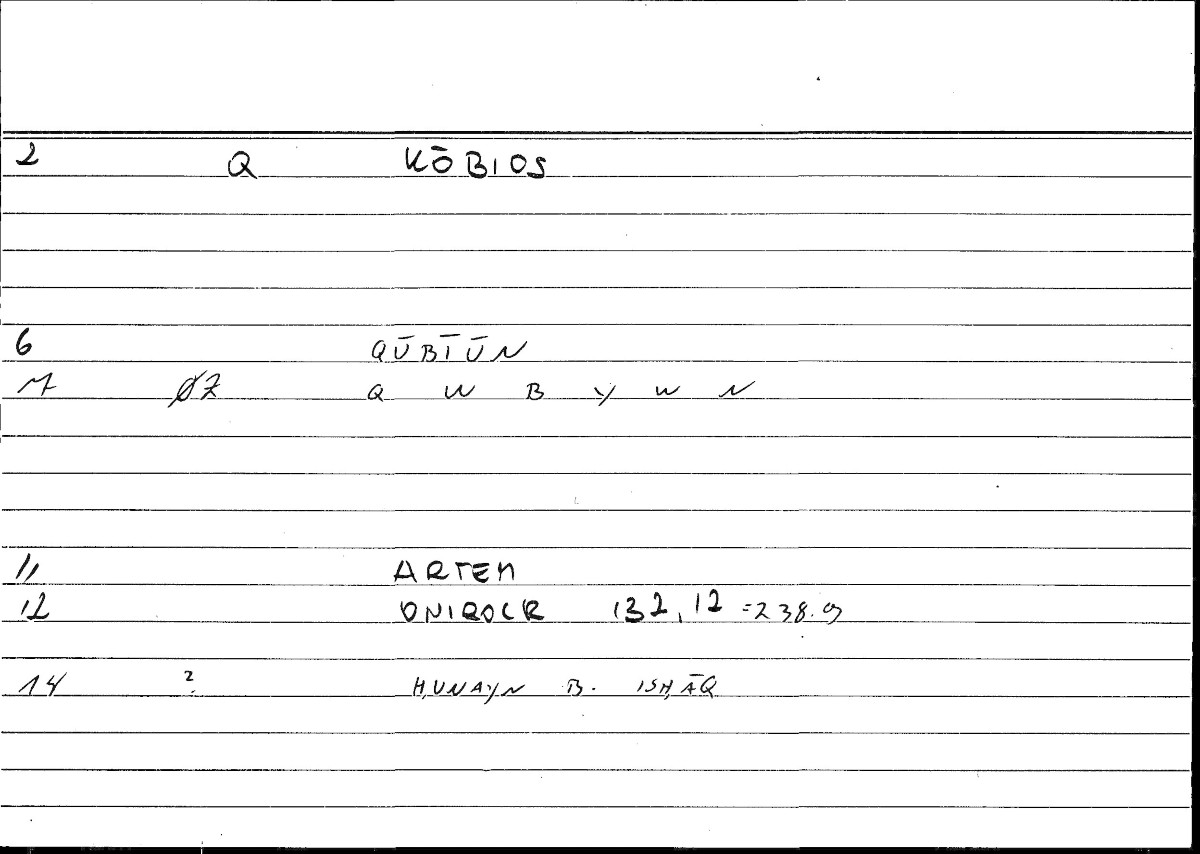 2 Q KŌBIOS
6 QŪBĪŪN
17 ØZ Q W B Y W N
11 ARTEM
12 ONIROCR 132,12 =238.9
14 ? ḤUNAYN B. ISḤĀQ